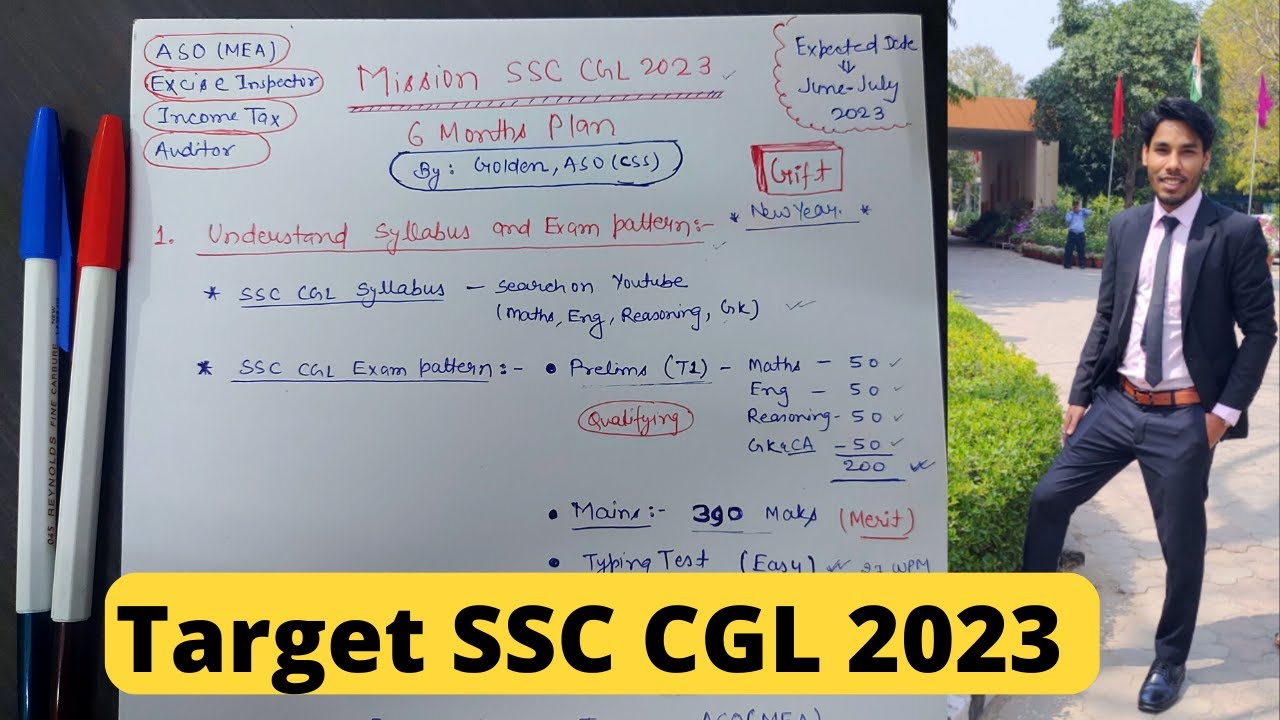 ASO (MEA)
Excise Inspector
Income Tax
Auditor
Mission SSC CGL 2023
6 Months Plan
By: Golden, ASO (CSS)
Expected Date
June-July
2023
Gift
* New Year. *
1. Understand Syllabus and Exam pattern:-
* SSC CGL Syllabus - search on Youtube
(Maths, Eng, Reasoning, Gk)
* SSC CGL Exam pattern:- • Prelims (T1) - Maths - 50
Qualifying
Eng - 50
Reasoning - 50
GK & CA - 50
200
• Mains:- 390 Maks (Merit)
• Typing Test (Easy) 27 WPM
Target SSC CGL 2023
045 REYNOLDS FINE CARBURE
ASO (MEA)